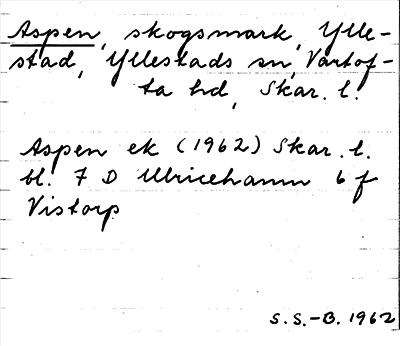 Aspen, skogsmark, Ylle-
stad, Yllestads sn, Vartof-
ta hd, Skar. l.
Aspen ek (1962) Skar. l.
bl. 7 D Ulricehamn 6 f
Vistorp
S.S.-B. 1962